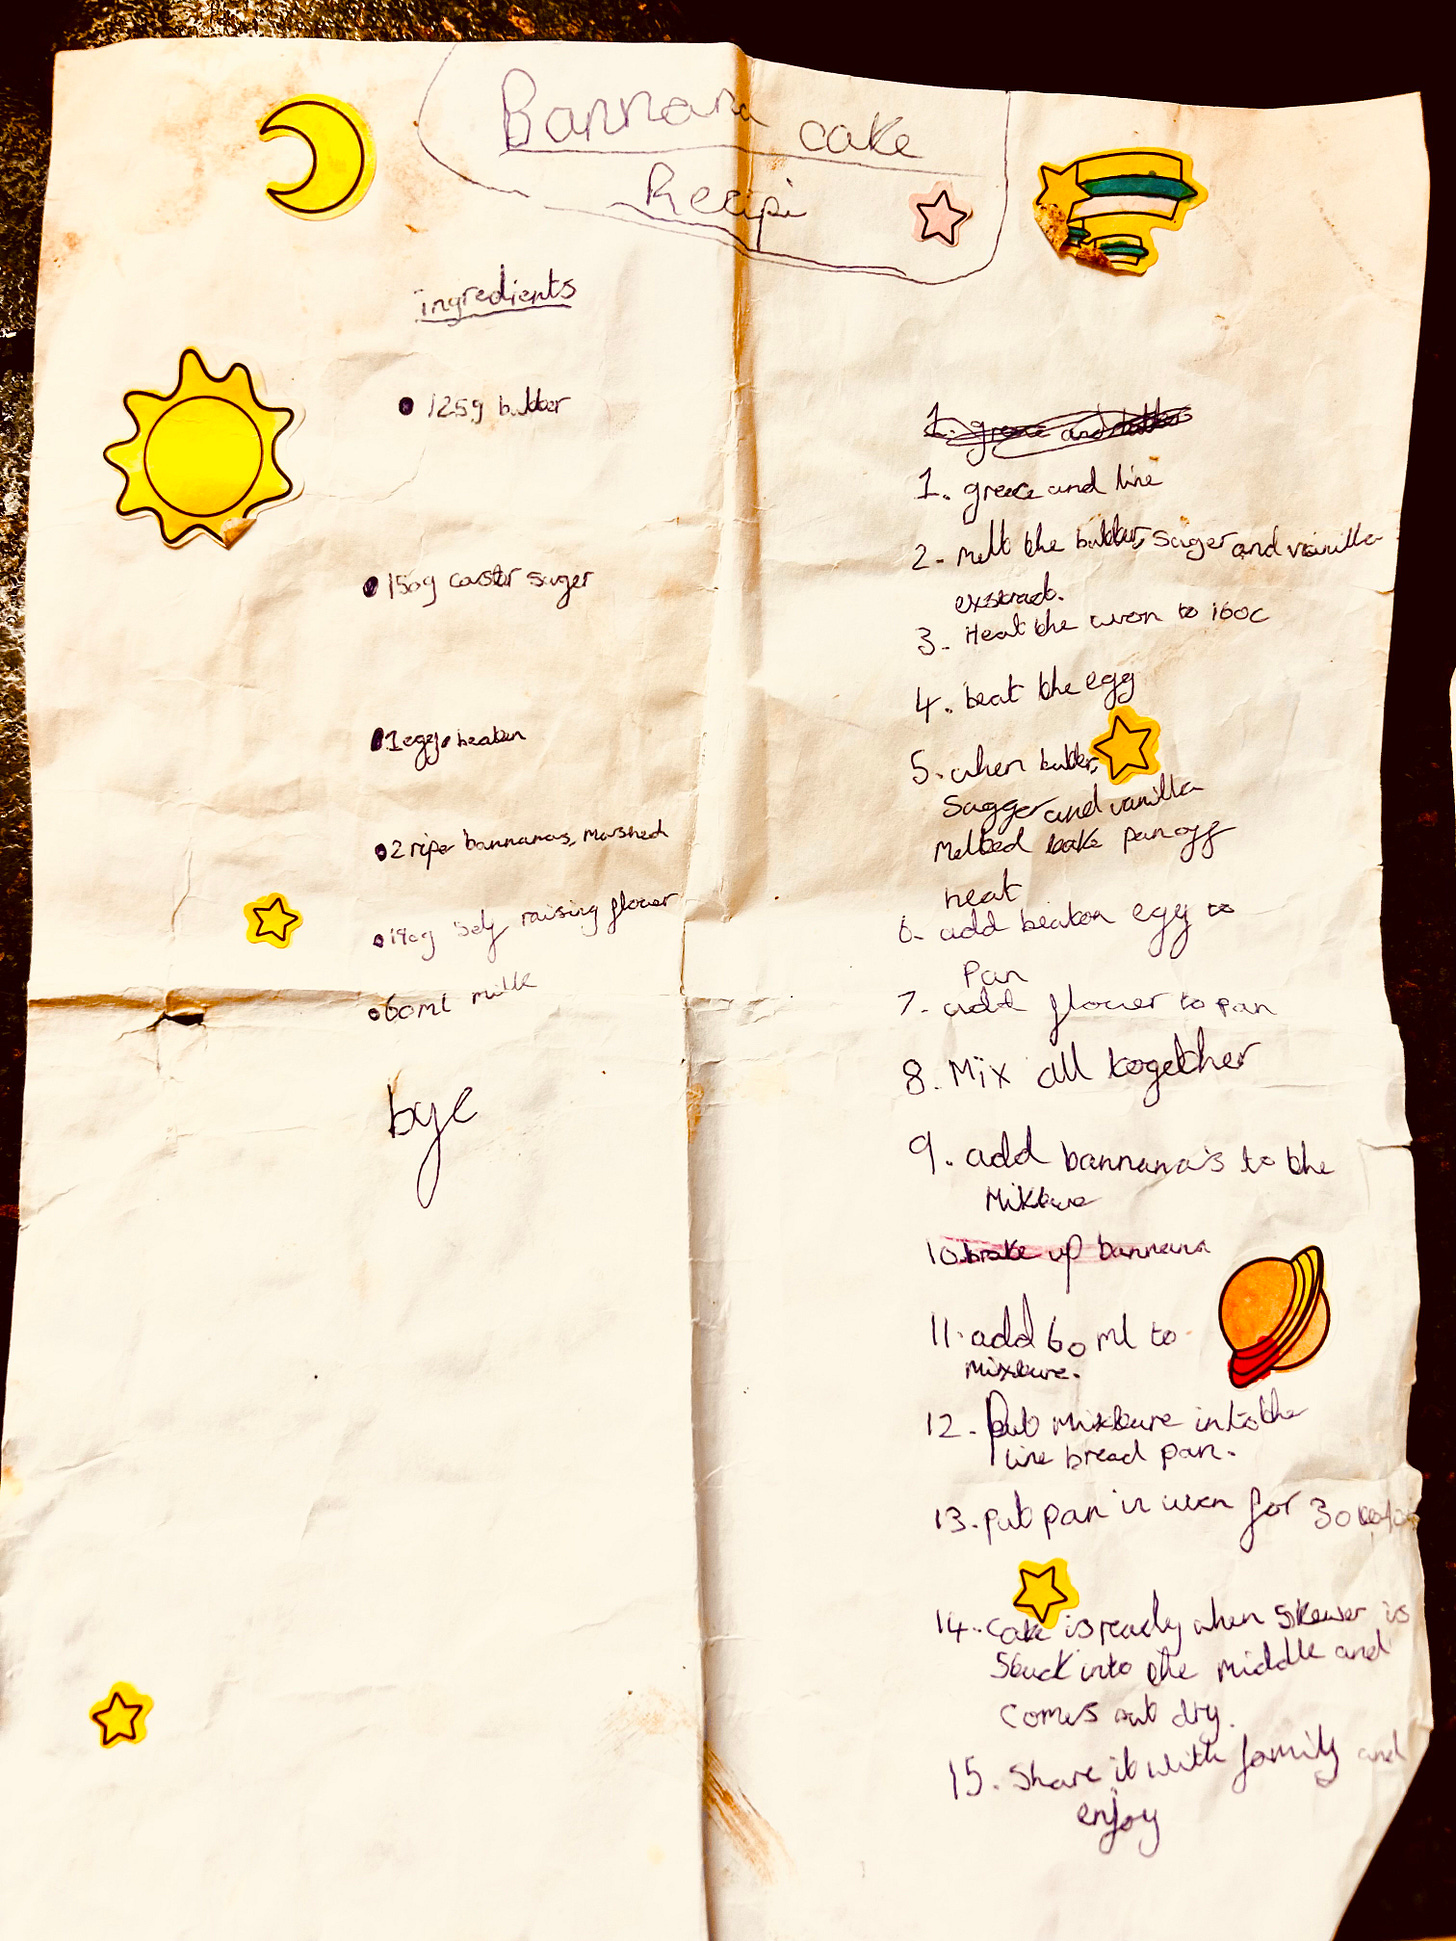 Bannana cake
Recipi
ingredients
• 125g butter
• 150g caster suger
• 1 egg, beaten
• 2 ripe bannanas, marshed
• 190g Self raising flower
• 60ml milk
bye
1. greace and line
2. Melt the butter, suger and vanilla
exstract.
3. Heat the uvon to 160c
4. beat the egg
5. when butter,
Sugger and vanilla
melted take pan off
heat
6. add beaten egg to
Pan
7. add flower to pan
8. Mix all together
9. add bannana's to the
Mixture
10. brake up bannana
11. add 60 ml to
mixture.
12. Put mixture into the
line bread pan.
13. put pan in uven for 30
14. Cake is ready when skewer is
Stuck into the middle and
comes out dry.
15. Share it with family and
enjoy